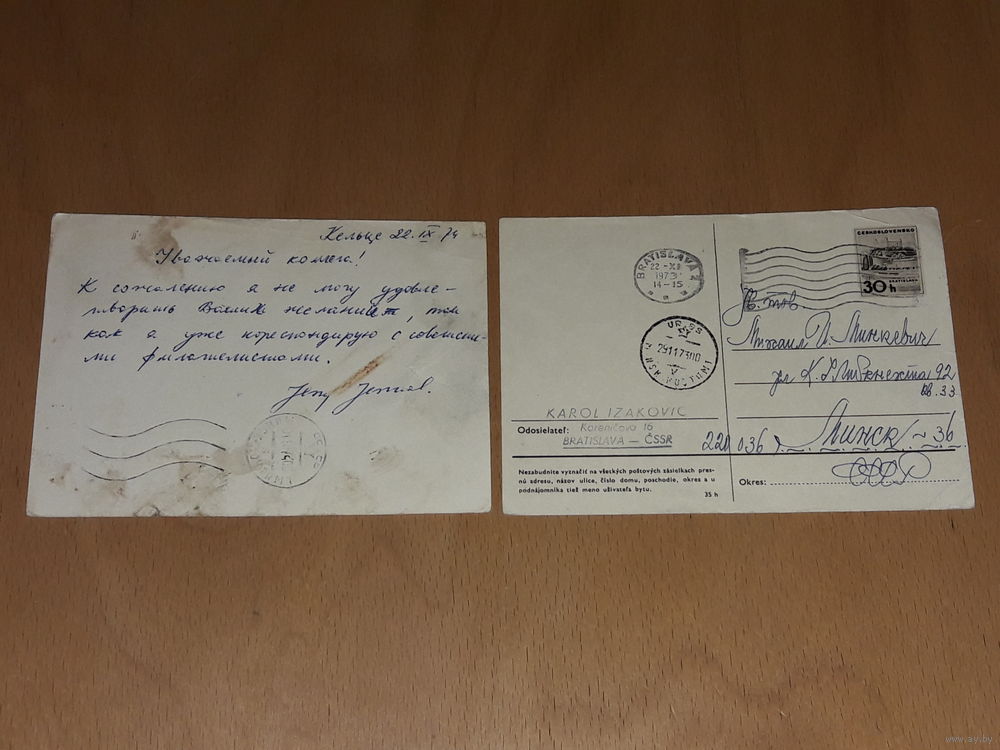 Кельце 22. IX 74
Уважаемый коллега!
К сожалению я не могу удовле-
творить Ваших желаний, так
как я уже кореспондирую с советски-
ми филателистами.
BRATISLAVA 2
22.-XI
1973
14-15
ČESKOSLOVENSKO
BRATISLAVA
30 h
291173
MINSK POSTAMT
Михаил И. Минкевич
ул К. Либкнехта 92
кв. 33
220 036 г. Минск - 36
СССР
KAROL IZAKOVIC
Odosielateľ: Koreničova 16
BRATISLAVA — ČSSR
Nezabudnite vyznačiť na všetkých poštových zásielkach pres-
nú adresu, názov ulice, číslo domu, poschodie, okres a u
podnájomníka tiež meno užívateľa bytu.
35 h
Okres:
www.ay.by